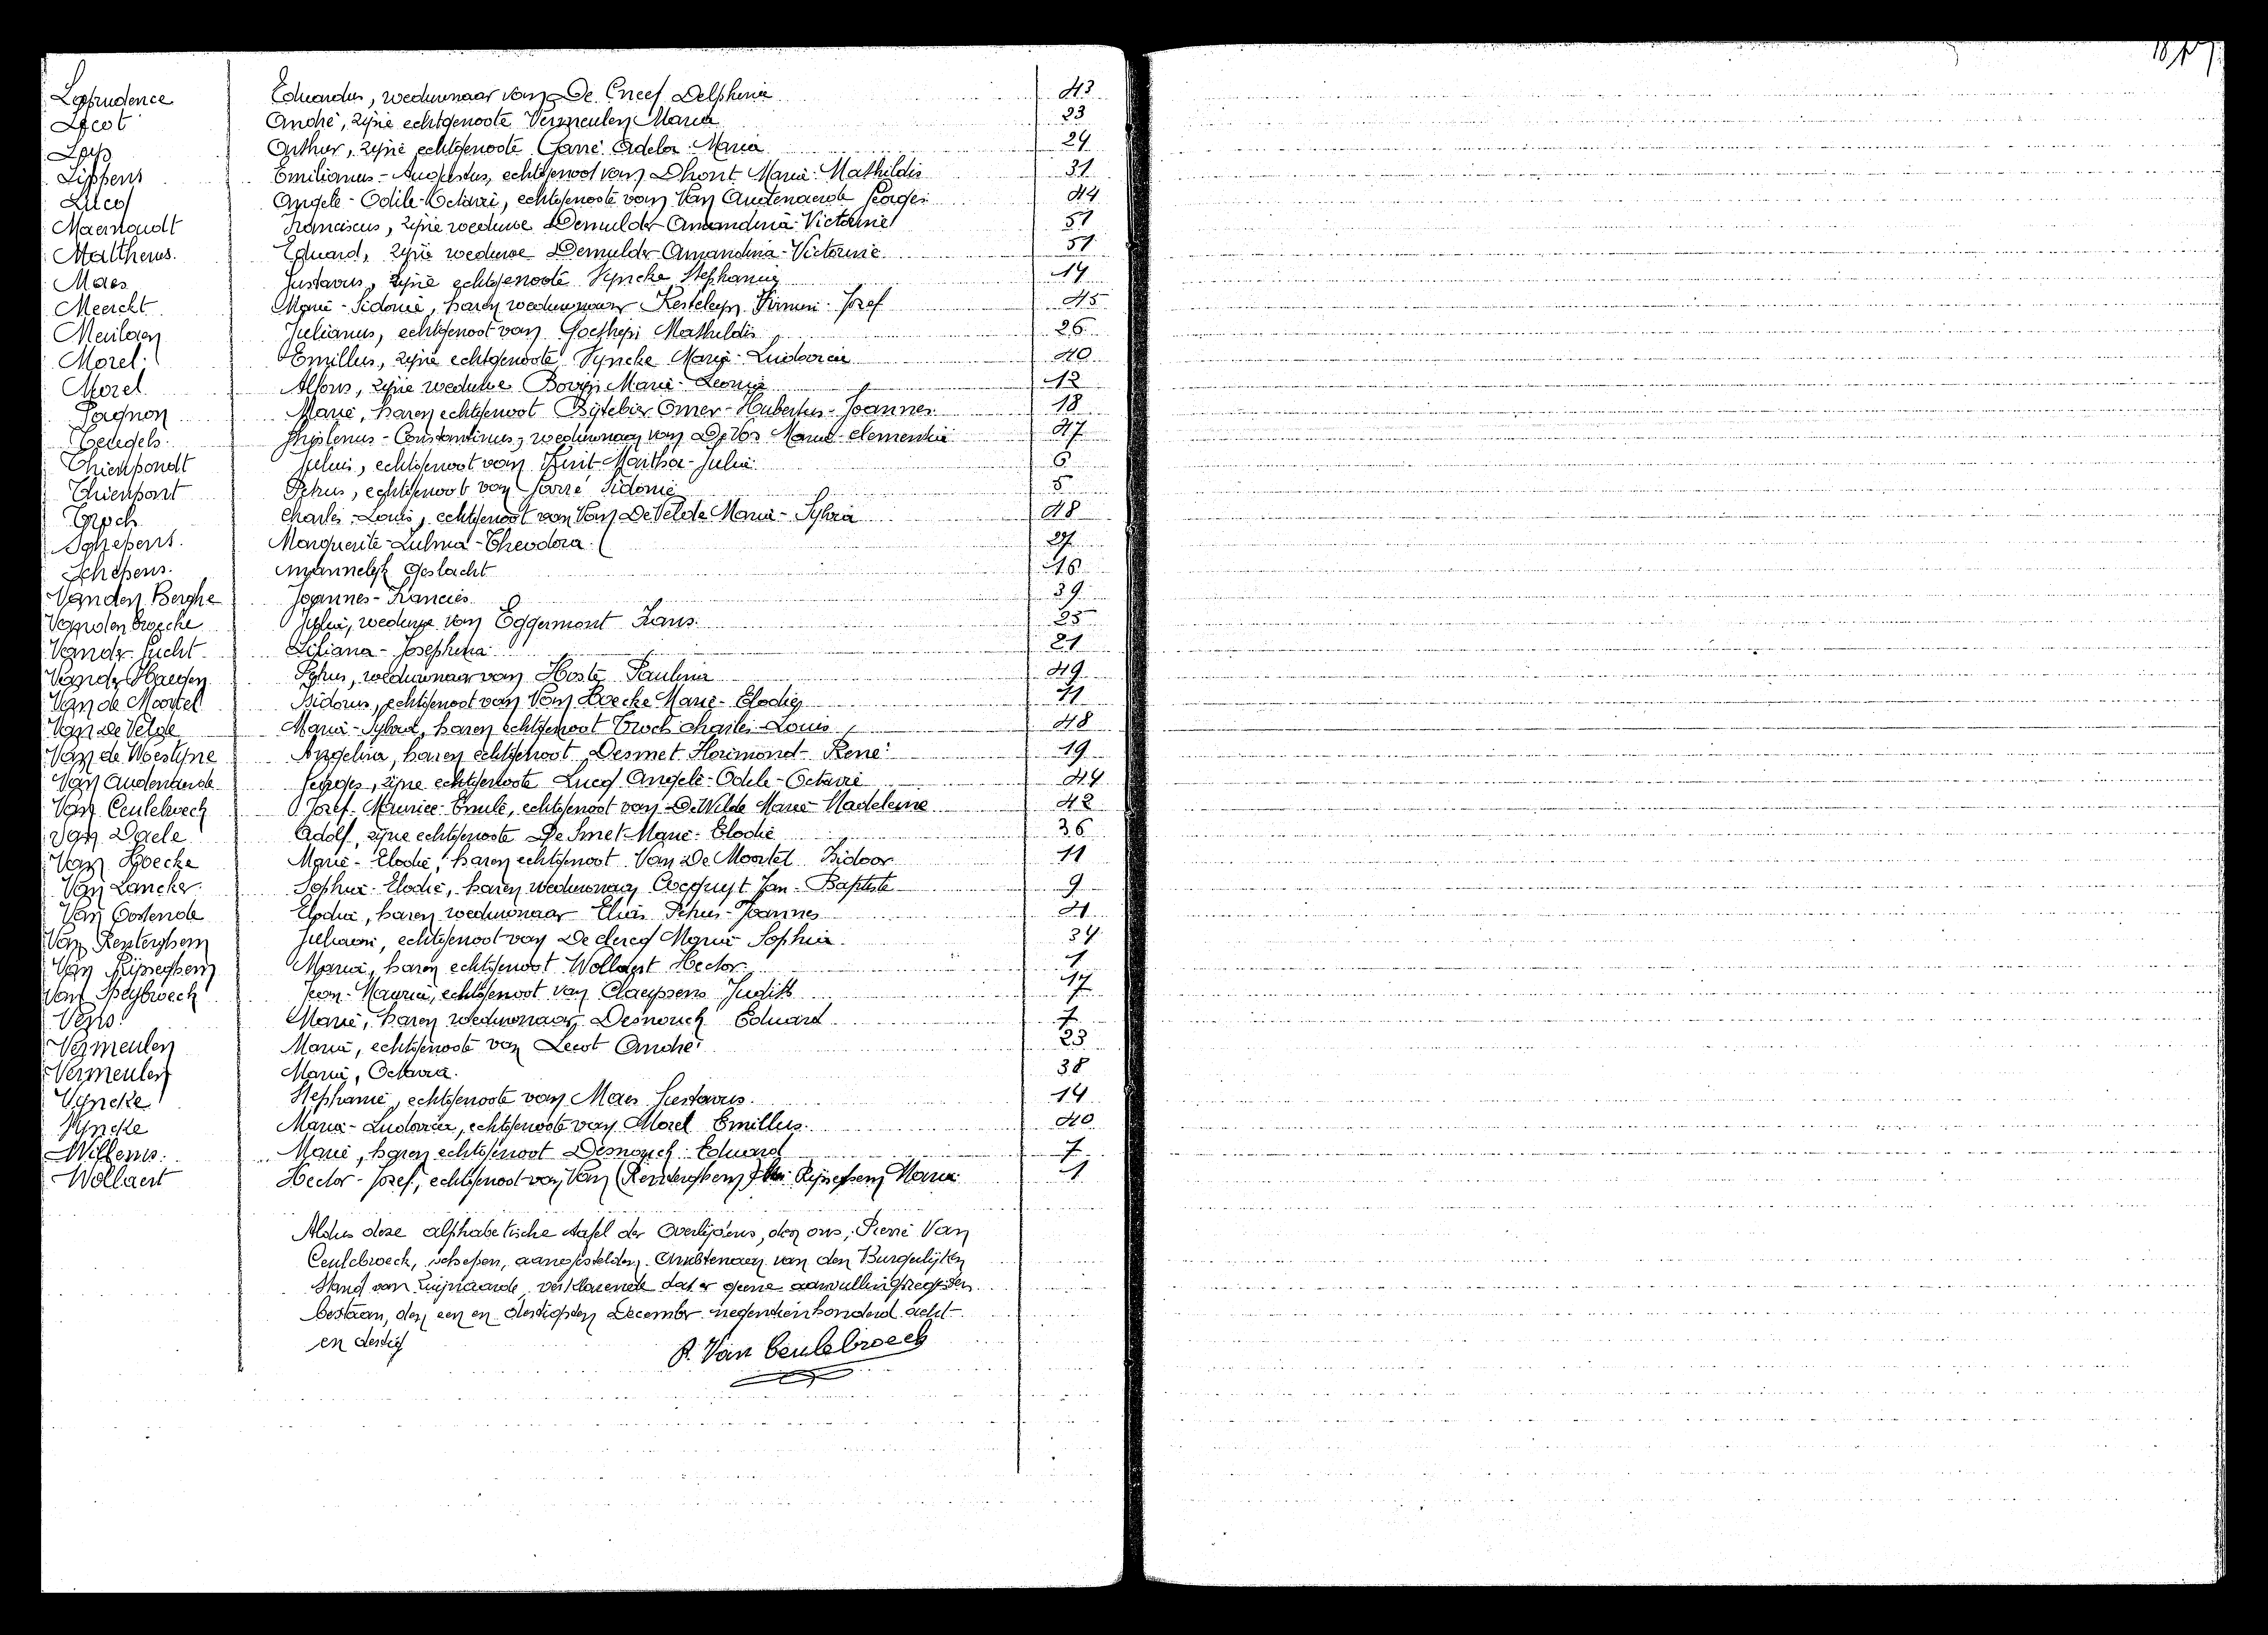 Laprudence Eduardus, weduwnaar van De Cneef Delphina 43
Lecot André, zijne echtgenoote Vermeulen Maria 23
Leys Arthur, zijne echtgenoote Garré Adela Maria 24
Lippens Emilianus-Augustus, echtgenoot van Dhont Maria Mathildis 31
Lucq Angele-Odile-Octavie, echtgenoote van Van Audenaerde Georges 44
Maernoudt Franciscus, zijne weduwe Demulder Amandina Victorine 51
Mattheus Eduard, zijne weduwe Demulder Amandina-Victorine 51
Maes Gustavus, zijne echtgenoote Vyncke Stephanie 14
Meerckt Marie-Sidonie, haren weduwnaar Kesteleyn Firmin Jozef 45
Meulaen Julianus, echtgenoot van Goethepi Mathildis 26
Morel Emillus, zijne echtgenoote Vyncke Maria-Ludovica 40
Morel Alfons, zijne weduwe Marie-Leonie 12
Pagnon Marie, haren echtgenoot Bijtebier Omer-Hubertus-Joannes 18
Ghislenus-Constantinus, weduwnaar van De Vos Marie-Clementia 47
Thienpondt Julius, echtgenoot van Martha-Julia 6
Thienpont Petrus, echtgenoot van Sidonie 5
Troch Charles-Louis, echtgenoot van Van De Velde Maria-Sylvia 48
Schepens Marguerite-Zulma-Theodora 27
Schepens mannelijk geslacht 16
Van den Berghe Joannes-Francies 39
Vandenbroecke Julia, weduwe van Eggermont Frans 25
Vander Gucht Liliana-Josephina 21
Vander Haegen Petrus, weduwnaar van Hoste Paulina 49
Van de Moortel Isidorus, echtgenoot van Van Hoecke Marie-Elodie 11
Van De Velde Maria-Sylvia, haren echtgenoot Troch Charles-Louis 48
Van de Woestyne Angelina, haren echtgenoot Desmet Florimond-René 19
Van Audenaerde Georges, zijne echtgenoote Lucq Angele-Odile-Octavie 44
Van Ceulebroeck Jozef-Maurice-Emile, echtgenoot van De Wilde Marie-Madeleine 42
Van Daele Adolf, zijne echtgenoote De Smet Marie-Elodie 36
Van Hoecke Marie-Elodie, haren echtgenoot Van De Moortel Isidoor 11
Van Lancker Sophie-Elodie, haren weduwnaar Cocquyt Jan-Baptiste 9
Van Oostende Elodia, haren weduwnaar Elias Petrus-Joannes 21
Van Renterghem Juliaan, echtgenoot van De Clercq Marie Sophia 34
Van Rijseghem Maria, haren echtgenoot Wollaert Hector 1
Van Speybroeck Jean-Maurice, echtgenoot van Claeyssens Judith 17
Marie, haren weduwnaar Eduard 7
Vermeulen Maria, echtgenoote van Lecot André 23
Vermeulen Maria, Octavia 38
Vyncke Stephanie, echtgenoote van Maes Gustavus 14
Vyncke Maria-Ludovica, echtgenoote van Morel Emillus 40
Willems Marie, haren echtgenoot Eduard 7
Wollaert Hector-Jozef, echtgenoot van Van (Renterghem) Rijseghem Maria 1
Aldus deze alphabetische tafel der Overlijdens, door ons, Pierre Van
Ceulebroeck, schepen, aangestelden Ambtenaar van den Burgerlijken
Stand van Zwijnaarde, verklarende dat er geene aanvullingsregisters
bestaan, den een en dertigsten December negentienhonderd acht-
en dertig
P. Van Ceulebroeck